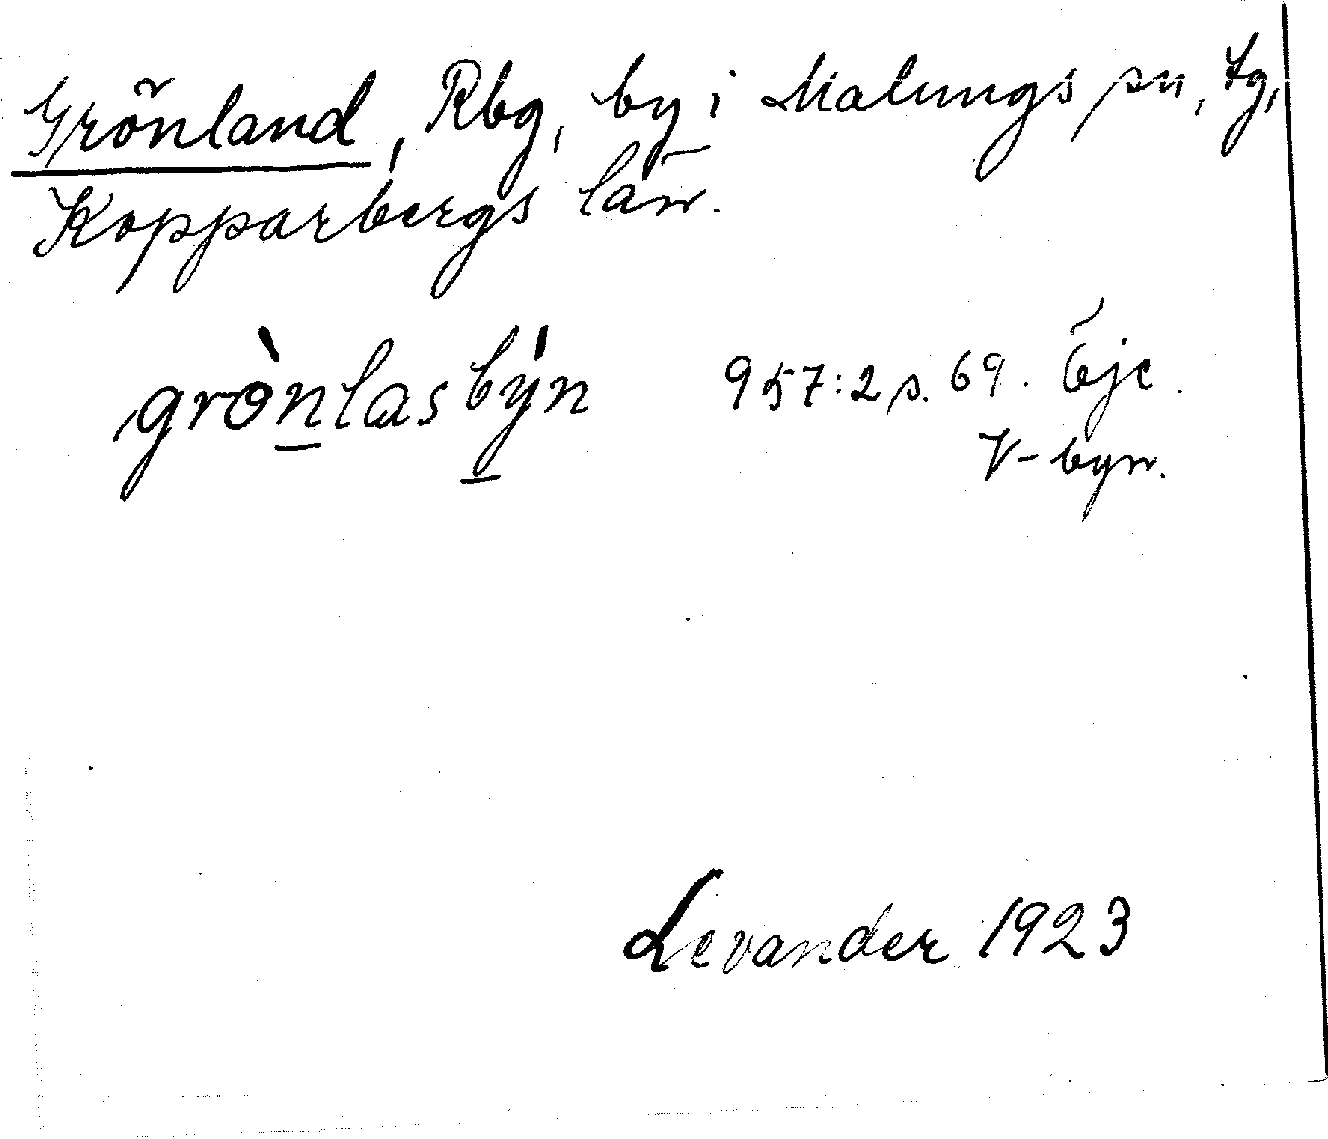 Grönland, Rbg, by i Malungs sn, tg,
Kopparbergs län.
grònlasby̍n 957:2 s. 69. Öje.
V-byn.
Levander 1923